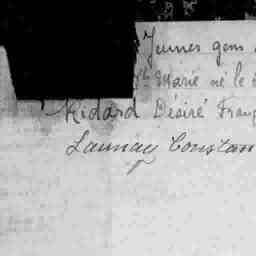 Jeunes gens
Marie né le
Ridard Désiré Franç
Launay Constan